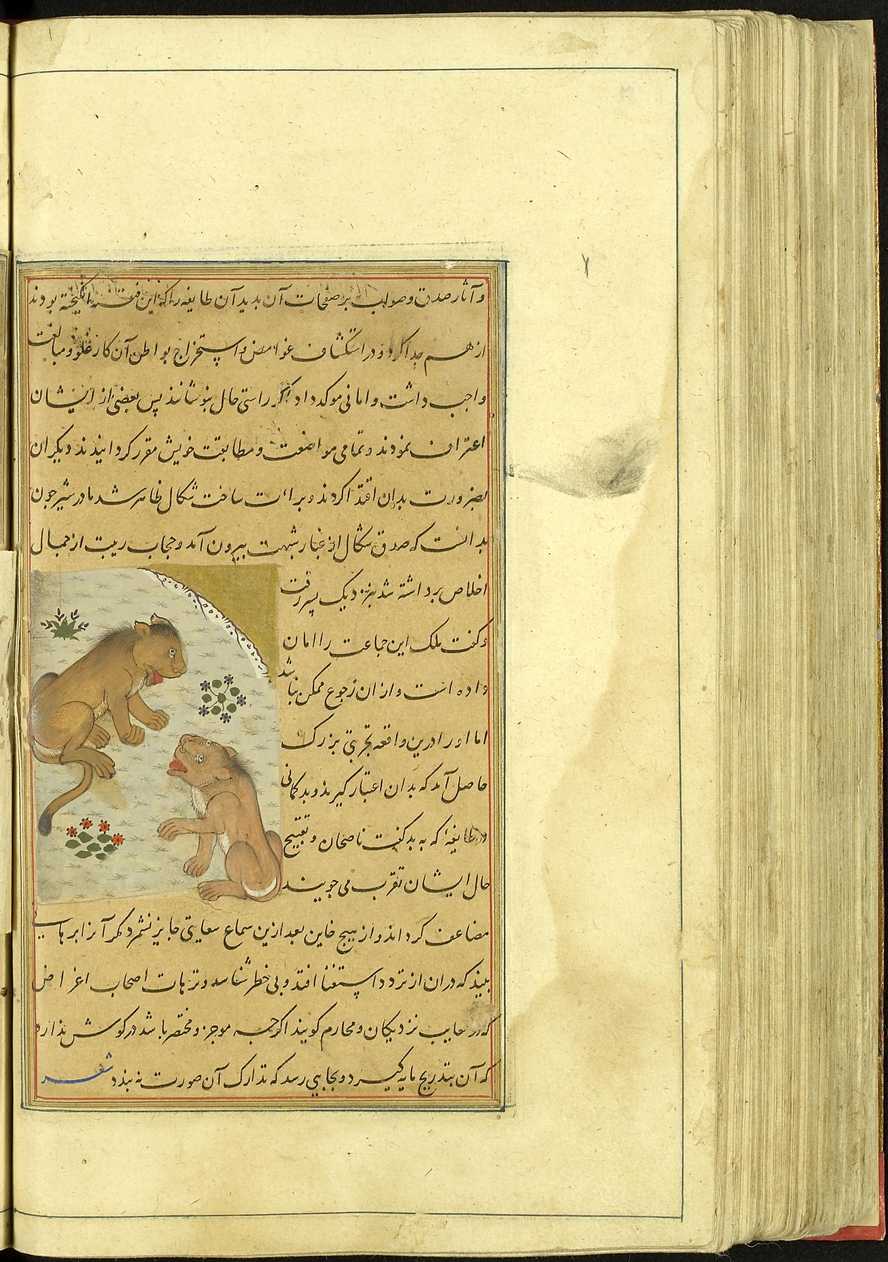 و آثار صدق وصواب بر صفحات آن بدید آن طایفه را که این فتنه انگیخته بودند
از هم جدا کرد و در استکشاف غوامض و استخراج بواطن آن کار غلو و مبالغت
واجب داشت و امانی موکد داد اگر راستی حال بنوشانند پس بعضی از ایشان
اعتراف نمودند و تمامی مواضعت و مطابقت خویش مقرر کردانیدند دیکران
بضرورت بدان اقتدا کردند و براءت ساخت شکال ظاهر شد مادر شیر چون
بدانست که صدق شکال از غبار شبهت بیرون آمد و حجاب ریبت از جمال
اخلاص برداشته شد بنزدیک پسر رفت
و کفت ملک این جماعت را امان
داده است و از ان رجوع ممکن نباشد
اما او را درین واقعه تجربتی بزرک
حاصل آمد که بدان اعتبار کیرد و بدکمانی
در طایفهٔ که به بدکفت ناصحان و تقبیح
حال ایشان تقرب می‌جویند
مضاعف کرداند و از هیچ خاین بعد ازین سماع سعایتی جایز نشمرد مکر آنرا برهانی
بیند که دران از تردد استغنا افتد و بی خطر شناسد و ترهات اصحاب اغراض
که در معایب نزدیکان و محارم کویند اکرچه موجز و مختصر باشد در کوش نکذارد
که آن بتدریج مایه کیرد و بجایی رسد که تدارک آن صورت نه بندد شعر